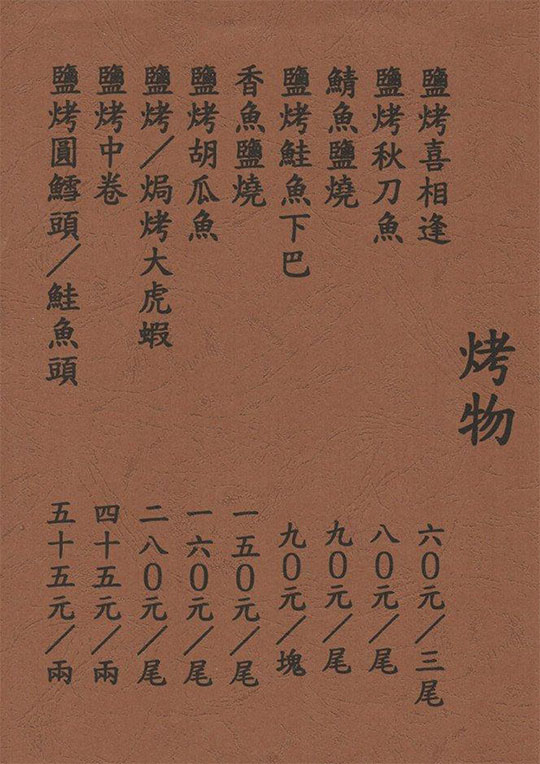 烤物
鹽烤喜相逢 六0元／三尾
鹽烤秋刀魚 八0元／尾
鯖魚鹽燒 九0元／尾
鹽烤鮭魚下巴 九0元／塊
香魚鹽燒 一五0元／尾
鹽烤胡瓜魚 一六0元／尾
鹽烤／焗烤大虎蝦 二八0元／尾
鹽烤中卷 四十五元／兩
鹽烤圓鱈頭／鮭魚頭 五十五元／兩